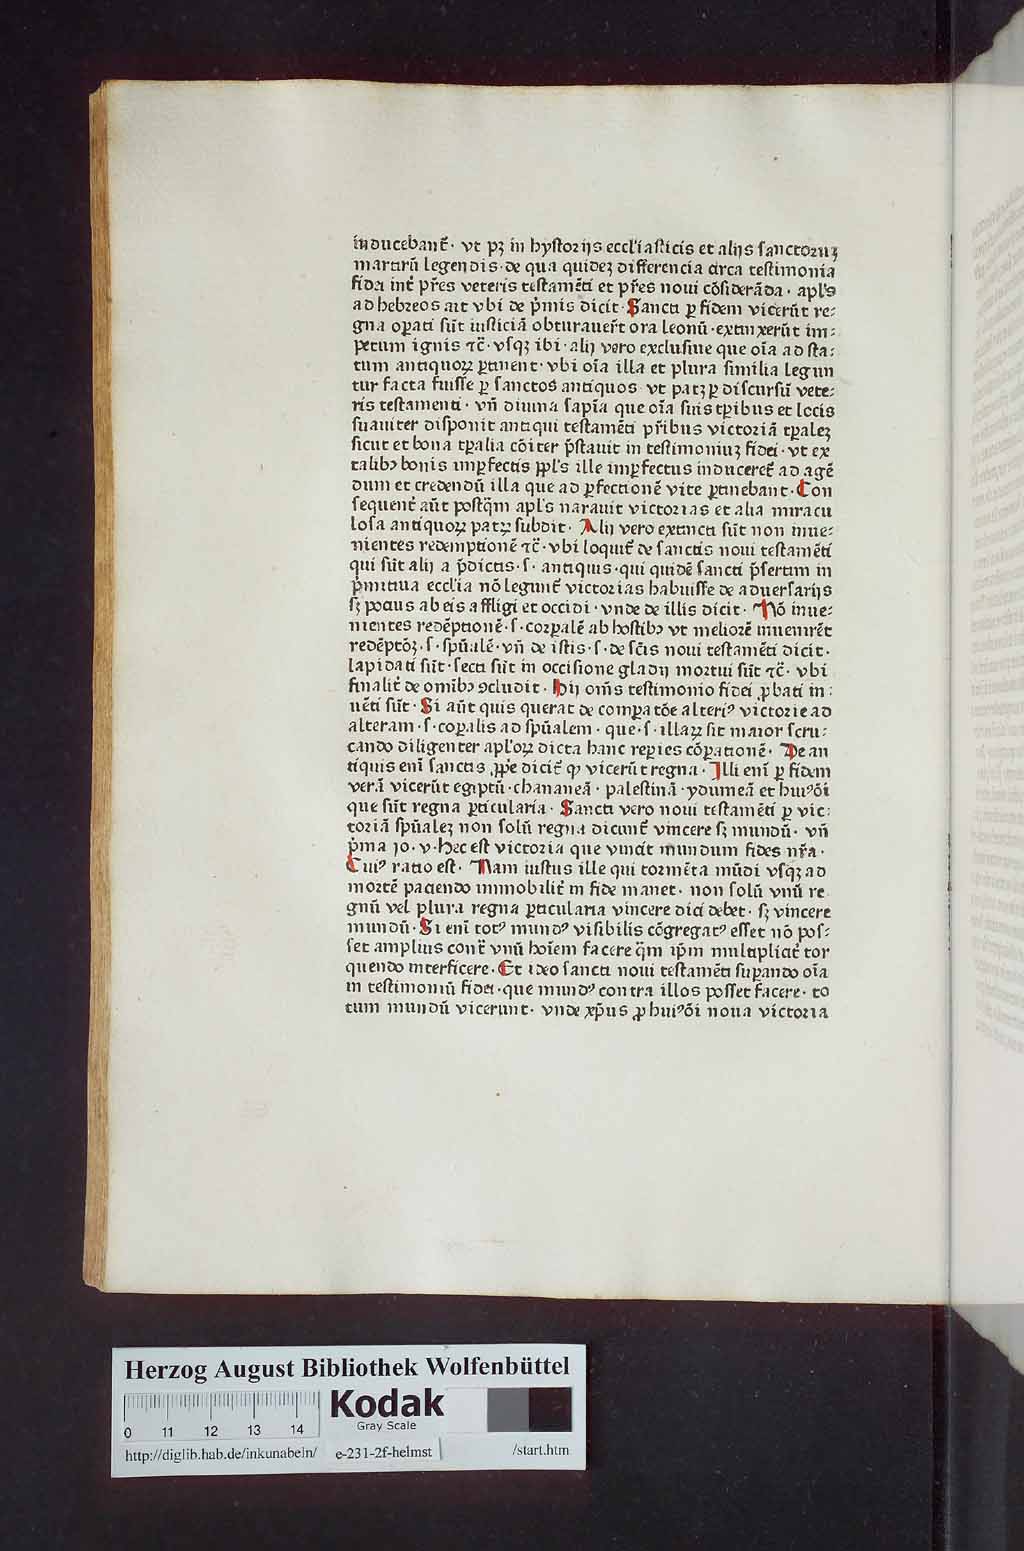 inducebant̃· vt pꝫ in hystorijs eccl'iasticis et alijs sanctoruꝫ
martirū legendis· de qua quidez differencia circa testimonia
fidei int̃ pr̃es veteris testamẽti et pr̃es noui cōsiderãda· apl's
ad hebreos ait vbi de p̃mis dicit· Sancti ꝑ fidem vicerūt re-
gna oꝑati sūt iusticiã obturauer̃t ora leonū· extinxerūt im-
petum ignis ⁊c̃· vsqꝫ ibi· alij vero exclusiue que oĩa ad sta-
tum antiquoꝝ ꝑtinent· vbi oĩa illa et plura similia legun
tur facta fuisse ꝑ sanctos antiquos· vt patꝫ ꝑ discursū vete-
ris testamenti· vñ diuina sapĩa que oĩa suis tꝑibus et locis
suauiter disponit antiqui testamẽti pr̃ibus victoriã tꝑalez
sicut et bona tꝑalia cōiter p̃stauit in testimoniuꝫ fidei· vt ex
talibꝰ bonis imꝑfectis ꝓpl's ille imꝑfectus induceret̃ ad agẽ
dum et credendū illa que ad ꝑfectionẽ vite ꝑtinebant· Con
sequent̃ aūt postq̃m apl's narauit victorias et alia miracu
losa antiquoꝝ patꝝ subdit· Alij vero extincti sūt non inue-
nientes redemptionẽ ⁊c̃· vbi loquit̃ de sanctis noui testamẽti
qui sūt alij a p̃dictis· s· antiquis· qui quidẽ sancti p̃sertim in
p̃mitiua eccl'ia nō legunt̃ victorias habuisse de aduersarijs
sꝫ pocius ab eis affligi et occidi· vnde de illis dicit· Nō inue-
nientes redẽptionẽ· s· corꝑalẽ ab hostibꝰ vt meliorẽ inuenirẽt
redẽptōꝫ· s· spũalẽ· vñ de istis· s· de sc̃is noui testamẽti dicit·
lapidati sūt· secti sūt in occisione gladij mortui sūt ⁊c̃· vbi
finalit̃ de omĩbꝰ ꝯcludit· Hij om̃s testimonio fidei ꝓbati in-
uẽti sūt· Si aūt quis querat de comꝑatōe alteriꝰ victorie ad
alteram· s· coꝑalis ad spũalem· que· s· illaꝝ sit maior scru-
tando diligenter apl'oꝝ dicta hanc reꝑies cōꝑationẽ· De an
tiquis enĩ sanctis ꝓp̃e dicit̃ ꝙ vicerūt regna· Illi enĩ ꝑ fidem
verã vicerūt egiptū· chananeã· palestinã· ydumeã et huiꝰōi
que sūt regna ꝑticularia· Sancti vero noui testamẽti ꝑ vic-
toriã spũalez non solū regna dicunt̃ vincere sꝫ mundū· vñ
p̃ma io· v· Hec est victoria que vincit mundum fides nr̃a·
Cuiꝰ ratio est· Nam iustus ille qui tormẽta mūdi vsqꝫ ad
mortẽ paciendo immobilit̃ in fide manet· non solū vnū re
gnū vel plura regna ꝑticularia vincere dici debet· sꝫ vincere
mundū· Si enĩ totꝰ mundꝰ visibilis cōgregatꝰ esset nō pos-
set amplius cont̃ vnū hoĩem facere q̃m ip̃m multiplicit̃ tor
quendo interficere· Et ideo sancti noui testamẽti suꝑando oĩa
in testimoniū fidei· que mundꝰ contra illos posset facere· to
tum mundū vicerunt· vnde xp̃us ꝓ huiꝰōi noua victoria
Herzog August Bibliothek Wolfenbüttel
0 11 12 13 14
Kodak
Gray Scale
http://diglib.hab.de/inkunabeln/ e-231-2f-helmst /start.htm